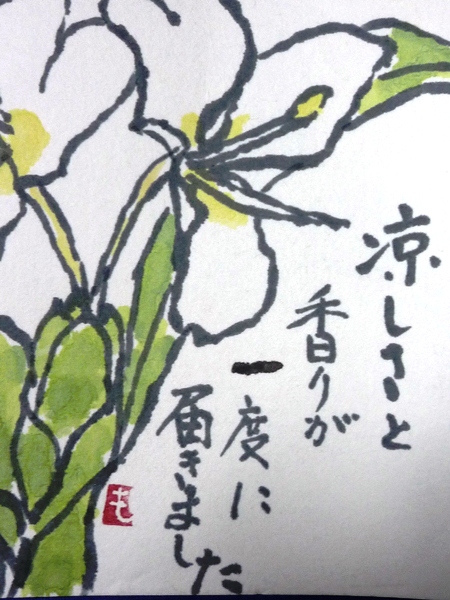 涼しさと
香りが
一度に
届きました
も